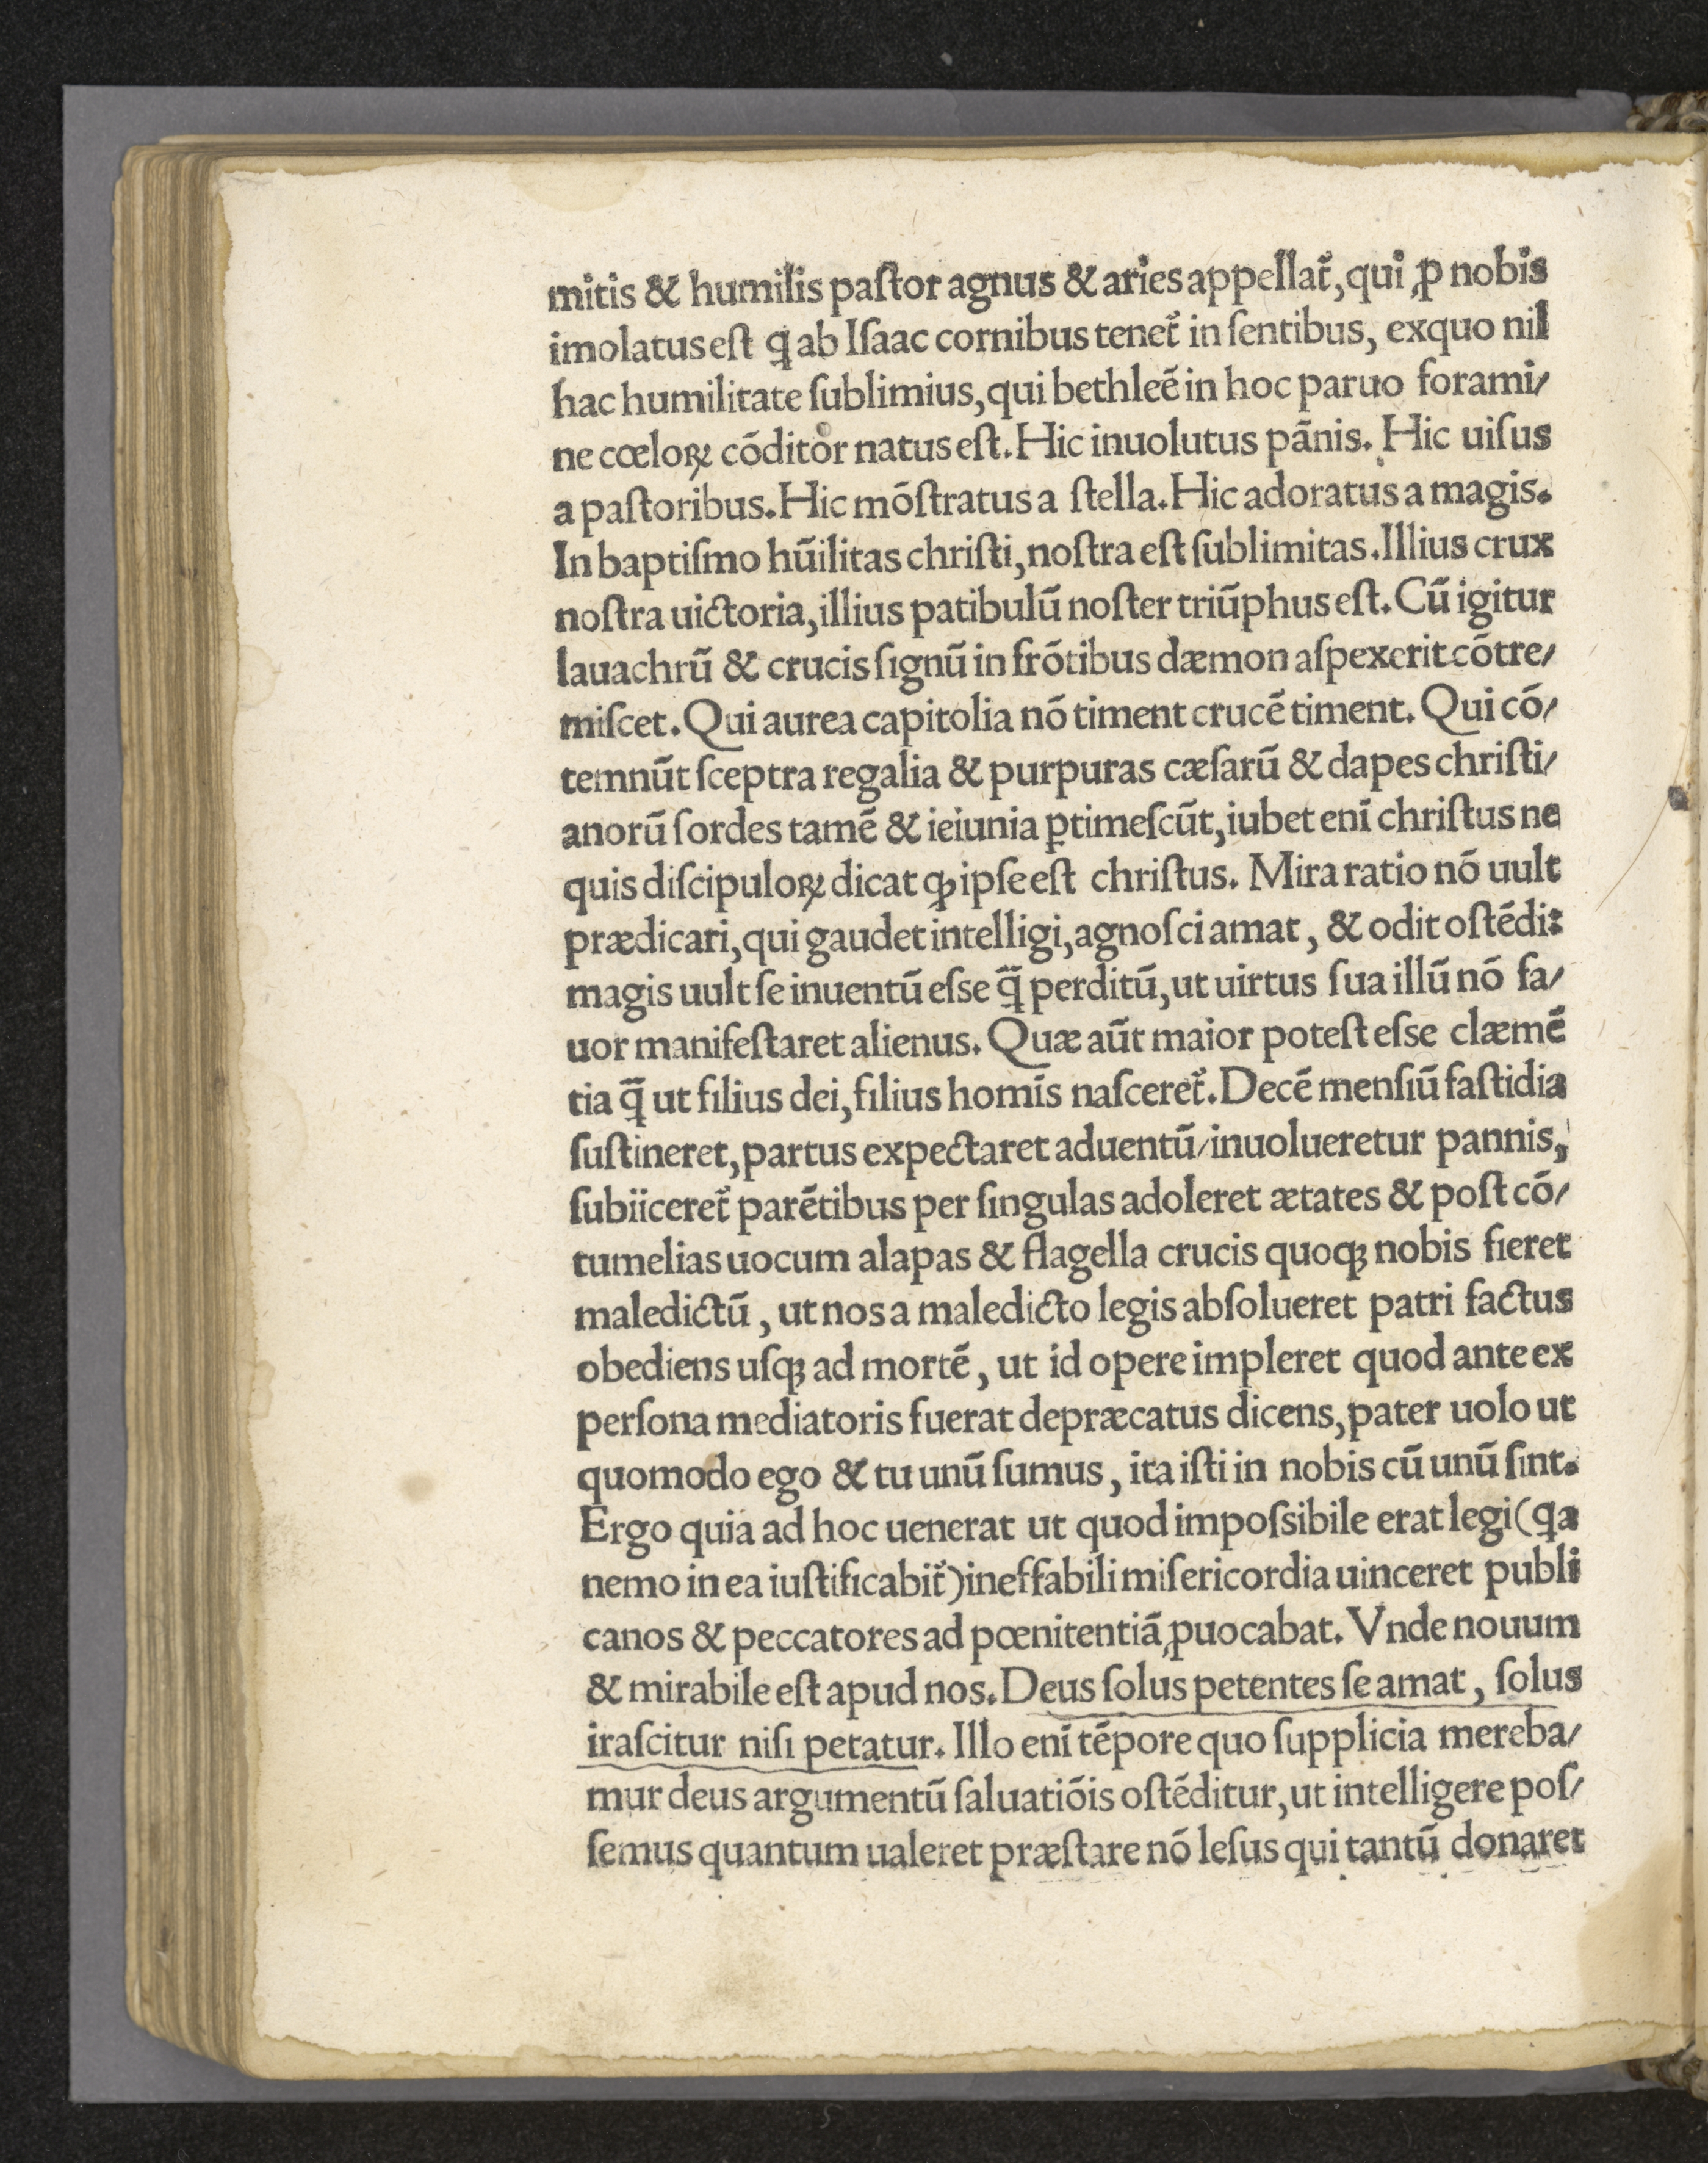 mitis & humilis paſtor agnus & aries appellat᷑, qui ꝓ nobis
imolatus eſt ꝗ ab Iſaac cornibus tenet᷑ in ſentibus, exquo nil
hac humilitate ſublimius, qui bethleē in hoc paruo forami/
ne cœloꝝ cōditor natus eſt. Hic inuolutus pānis. Hic uiſus
a paſtoribus. Hic mōſtratus a ſtella. Hic adoratus a magis.
In baptiſmo hūilitas chriſti, noſtra eſt ſublimitas. Illius crux
noſtra uictoria, illius patibulū noſter triūphus eſt. Cū igitur
lauachrū & crucis ſignū in frōtibus dæmon aſpexerit cōtre/
miſcet. Qui aurea capitolia nō timent crucē timent. Qui cō/
temnūt ſceptra regalia & purpuras cæſarū & dapes chriſti/
anorū ſordes tamē & ieiunia ꝑtimeſcūt, iubet enī chriſtus ne
quis diſcipuloꝝ dicat ꝙ ipſe eſt chriſtus. Mira ratio nō uult
prædicari, qui gaudet intelligi, agnoſci amat, & odit oſtēdi:
magis uult ſe inuentū eſse q̄̃ perditū, ut uirtus ſua illū nō fa/
uor manifeſtaret alienus. Quæ aūt maior poteſt eſse clæmē
tia q̄̃ ut filius dei, filius homīs naſceret᷑. Decē menſiū faſtidia
ſuſtineret, partus expectaret aduentū/inuolueretur pannis,
ſubiiceret᷑ parētibus per ſingulas adoleret ætates & poſt cō/
tumelias uocum alapas & flagella crucis quoqꝫ nobis fieret
maledictū, ut nos a maledicto legis abſolueret patri factus
obediens uſqꝫ ad mortē, ut id opere impleret quod ante ex
perſona mediatoris fuerat depræcatus dicens, pater uolo ut
quomodo ego & tu unū ſumus, ita iſti in nobis cū unū ſint.
Ergo quia ad hoc uenerat ut quod impoſsibile erat legi (ꝗa
nemo in ea iuſtificabit᷑) ineffabili miſericordia uinceret publi
canos & peccatores ad pœnitentiā ꝓuocabat. Vnde nouum
& mirabile eſt apud nos. Deus ſolus petentes ſe amat, ſolus
iraſcitur niſi petatur. Illo enī tēpore quo ſupplicia mereba/
mur deus argumentū ſaluatiōis oſtēditur, ut intelligere poſ/
ſemus quantum ualeret præſtare nō leſus qui tantū donaret